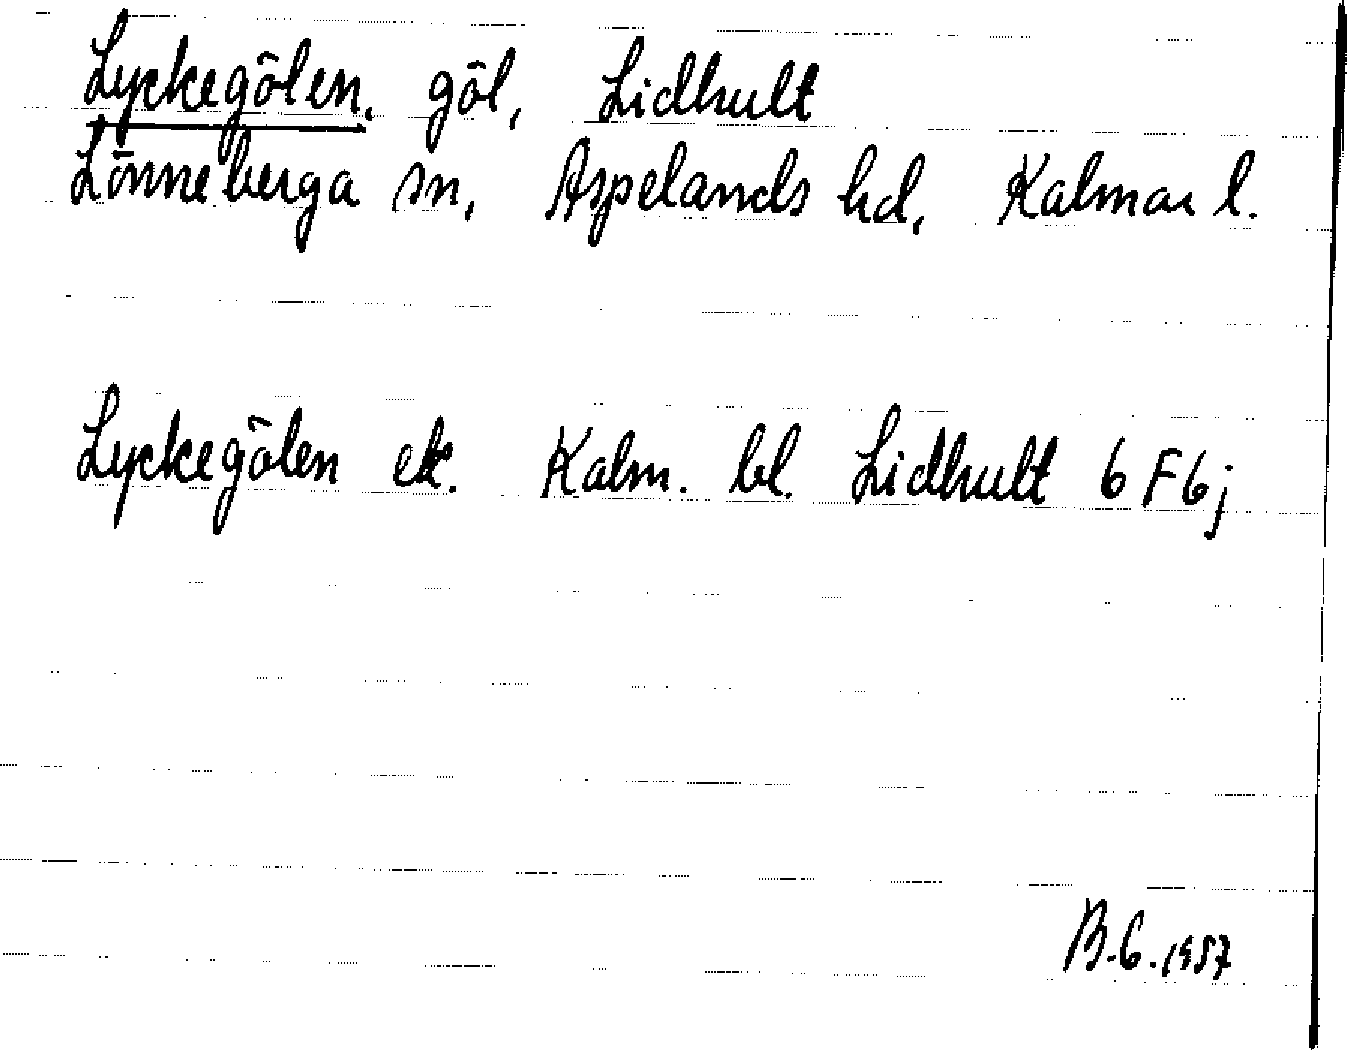 Lyckegölen, göl, Lidhult
Lönneberga sn, Aspelands hd, Kalmar l.
Lyckegölen ek. Kalm. bl. Lidhult 6 F6j
B.G. 1957